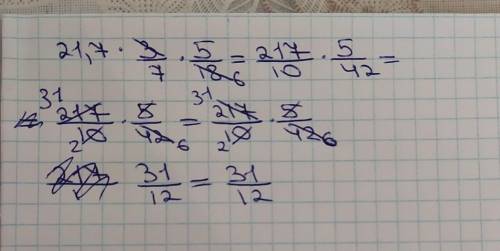 21,7 · 3/7 · 5/18 6 = 217/10 · 5/42 =
31 217/2 10 · 5/42 6 = 31 217/2 10 · 5/42 6
31/12 = 31/12